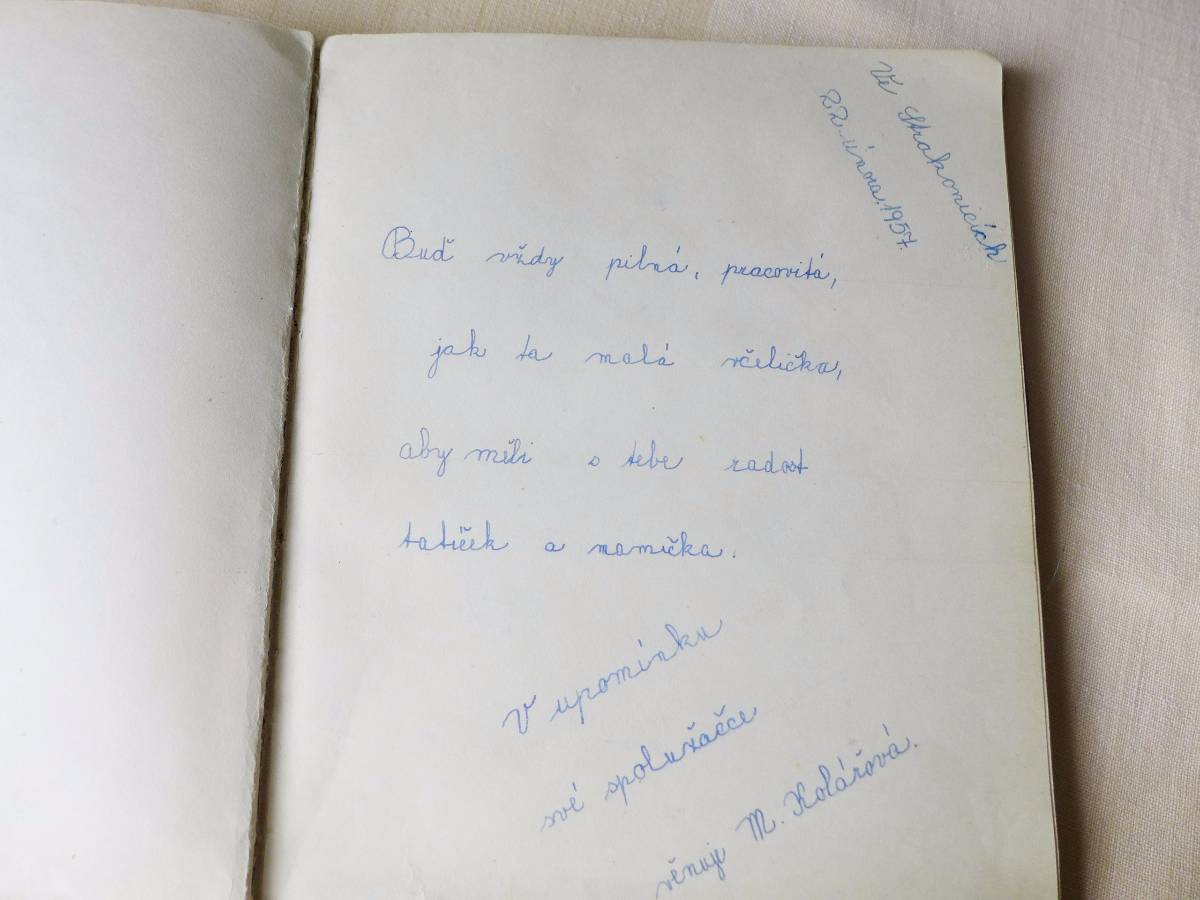 Ve Strakonicích
22. února. 1957.
Buď vždy pilná, pracovitá,
jak ta malá včelička,
aby měli s tebe radost
tatíček a mamička.
V upomínku
své spolužačce
věnuje M. Kolářová.